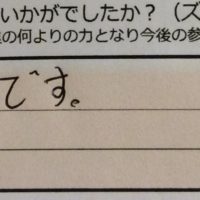 いかがでしたか？（ズ
の何よりの力となり今後の参
です。